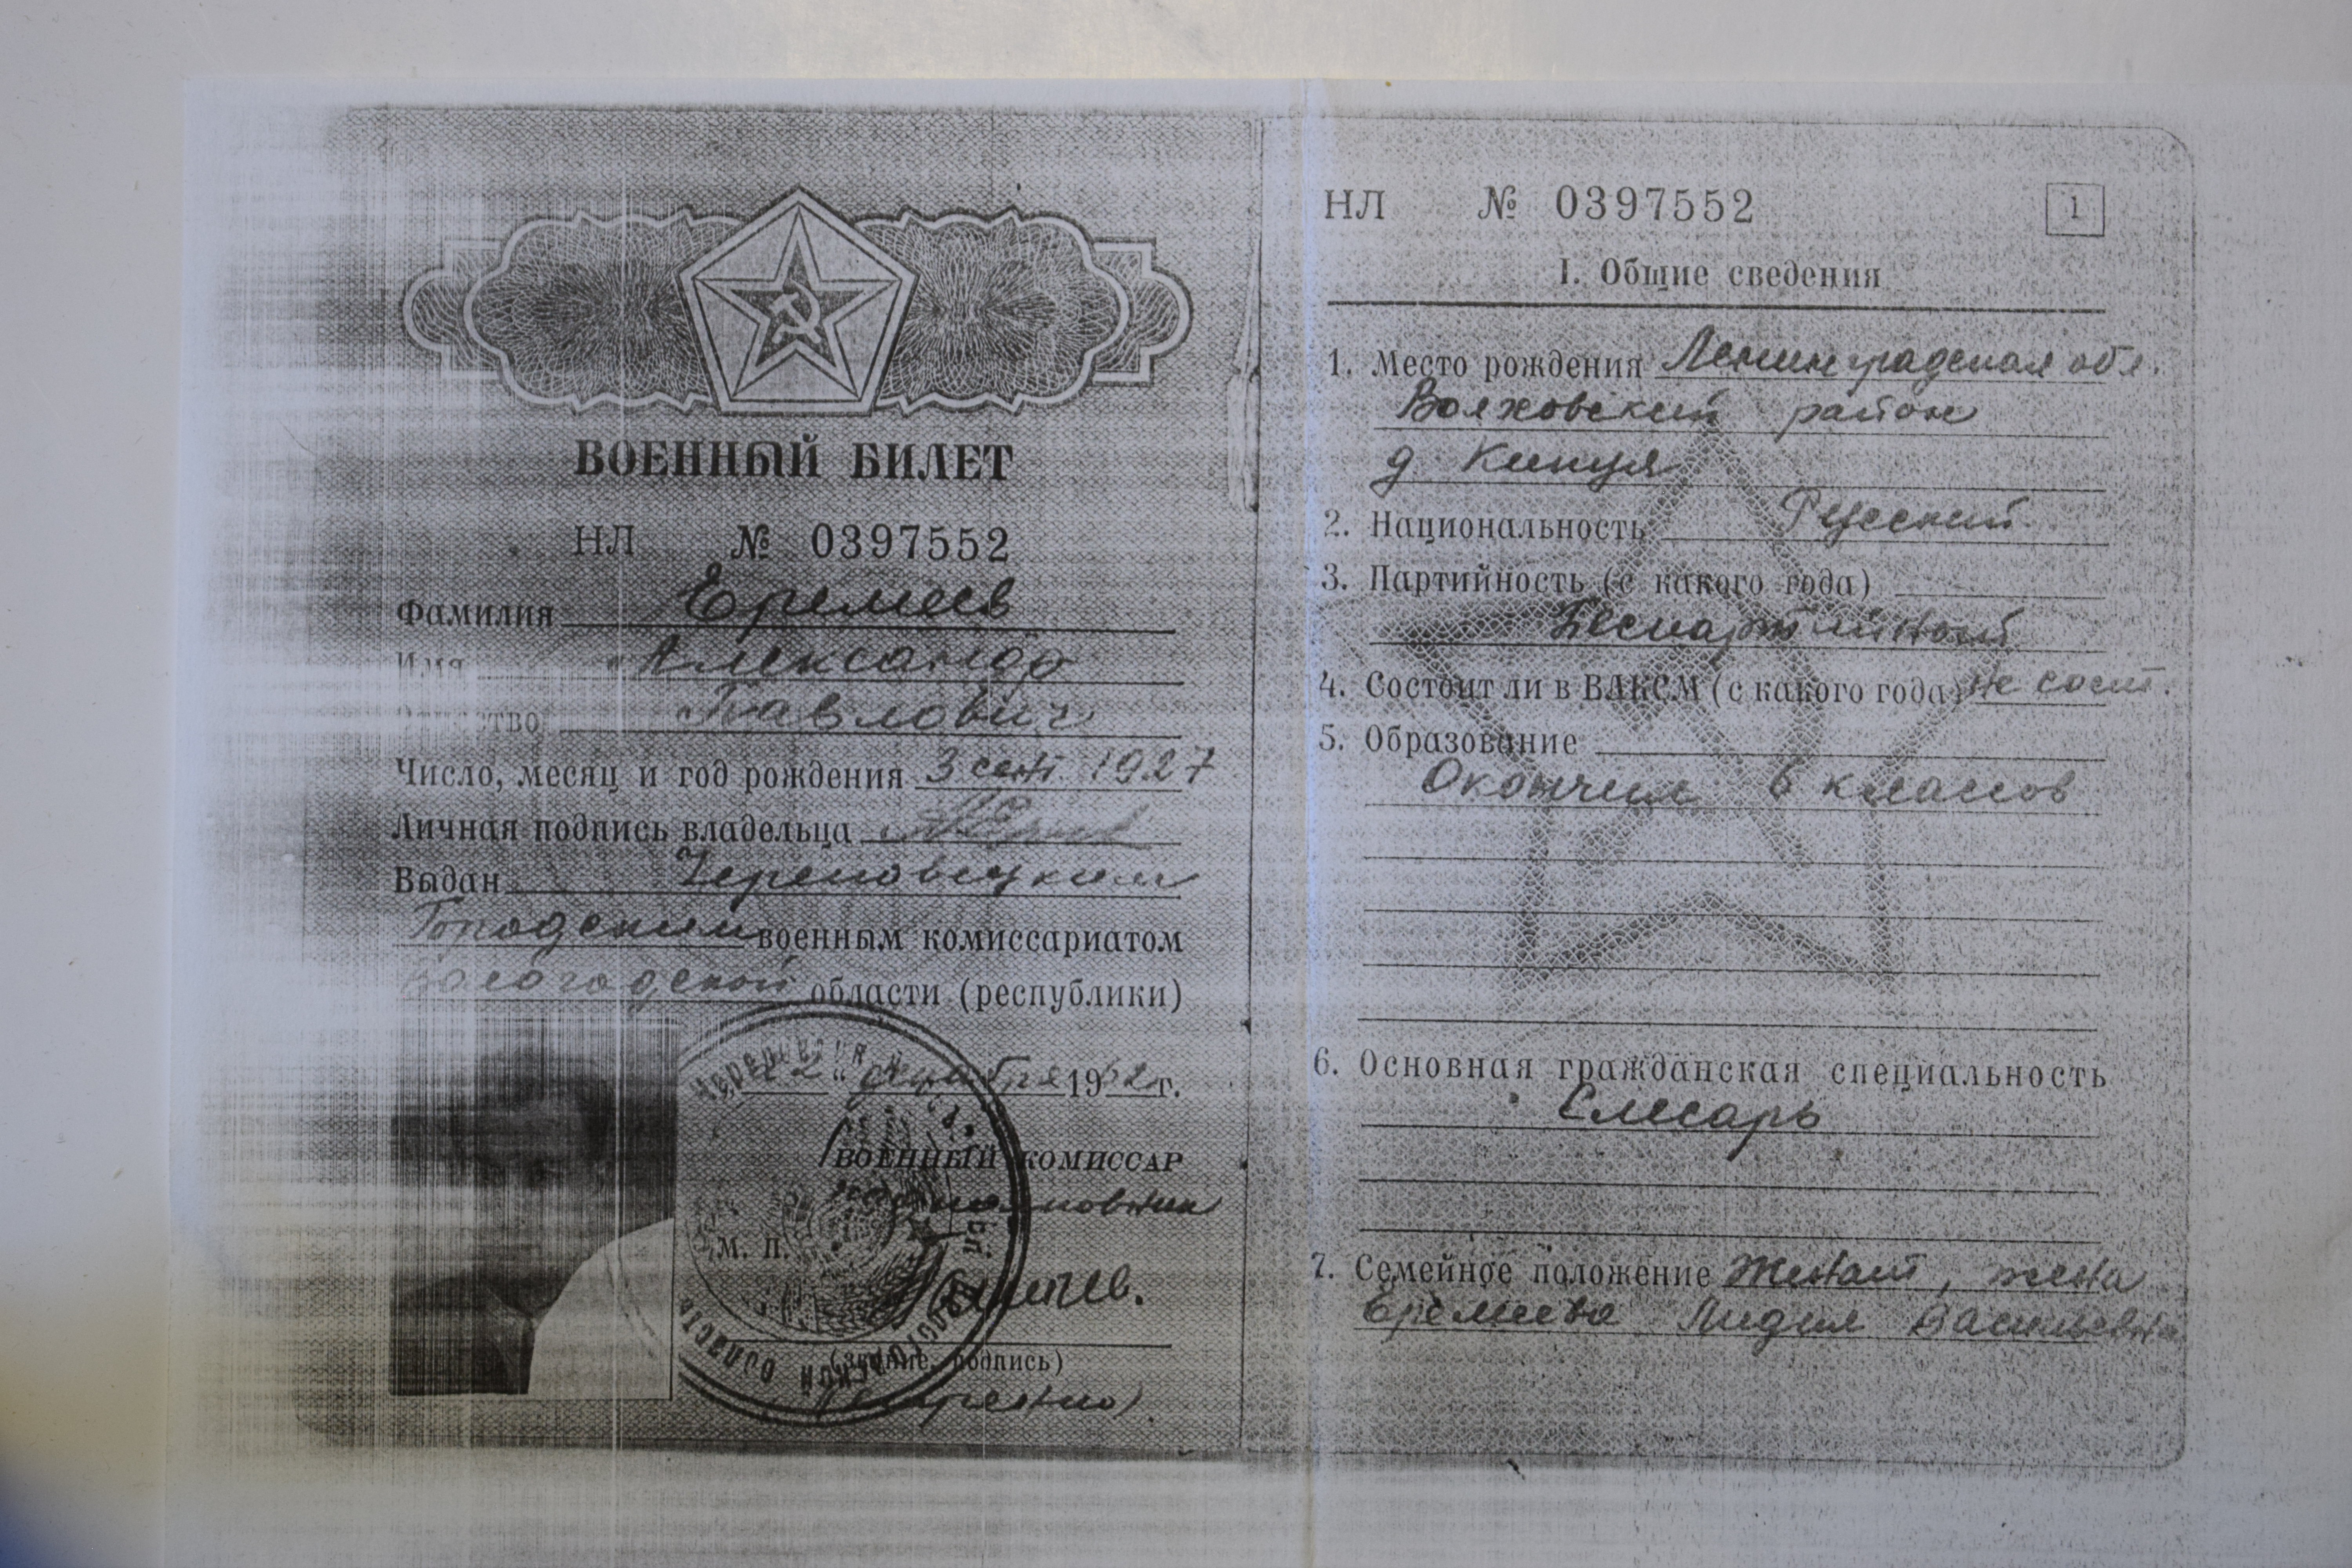 ВОЕННЫЙ БИЛЕТ
НЛ № 0397552
Фамилия Еремеев
Имя Александр
Отчество Павлович
Число, месяц и год рождения 3 сент. 1927
Личная подпись владельца
Выдан Череповецким
Городским военным комиссариатом
Вологодской области (республики)
22 " декабря 1962 г.
ВОЕННЫЙ КОМИССАР
М. П.
(звание, подпись)
НЛ № 0397552
1
I. Общие сведения
1. Место рождения Ленинградская обл.
Волховский район
д.
2. Национальность Русский
3. Партийность (с какого года)
Беспартийный
4. Состоит ли в ВЛКСМ (с какого года) не сост.
5. Образование
Окончил 6 классов
6. Основная гражданская специальность
Слесарь
7. Семейное положение Женат, жена
Еремеева Лидия Васильевна